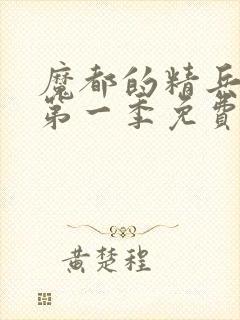 魔都的精兵
第一季免費
黄楚程